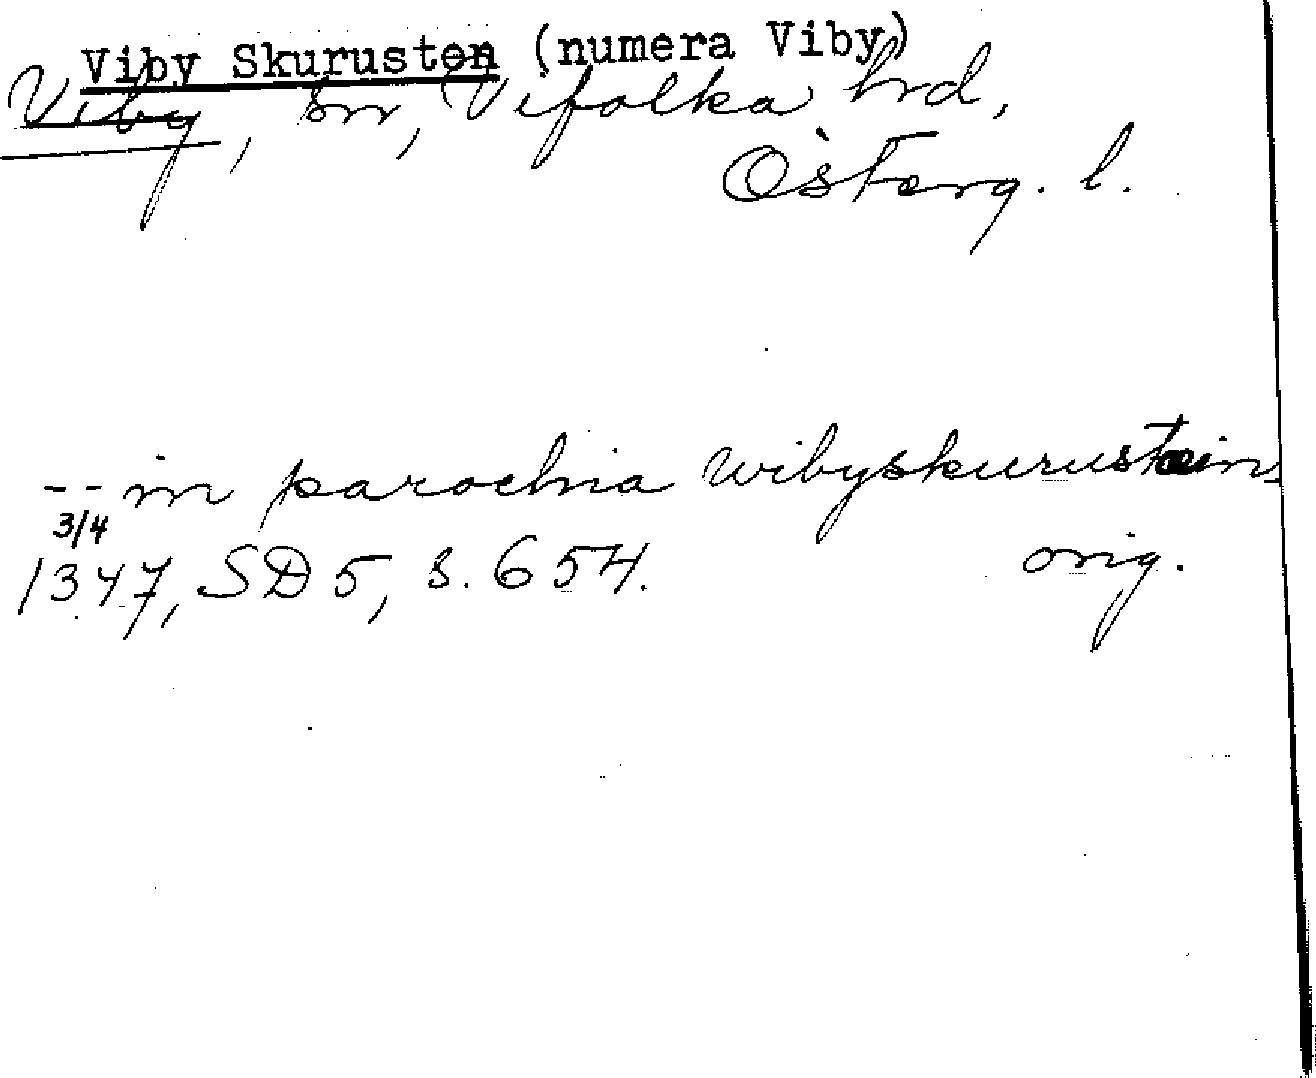 Viby Skurusten (numera Viby)
Viby, sn, Vifolka hrd,
Österg. l.
-- in parochia wibyskurustein
3/4
1347, SD 5, s. 654. orig.